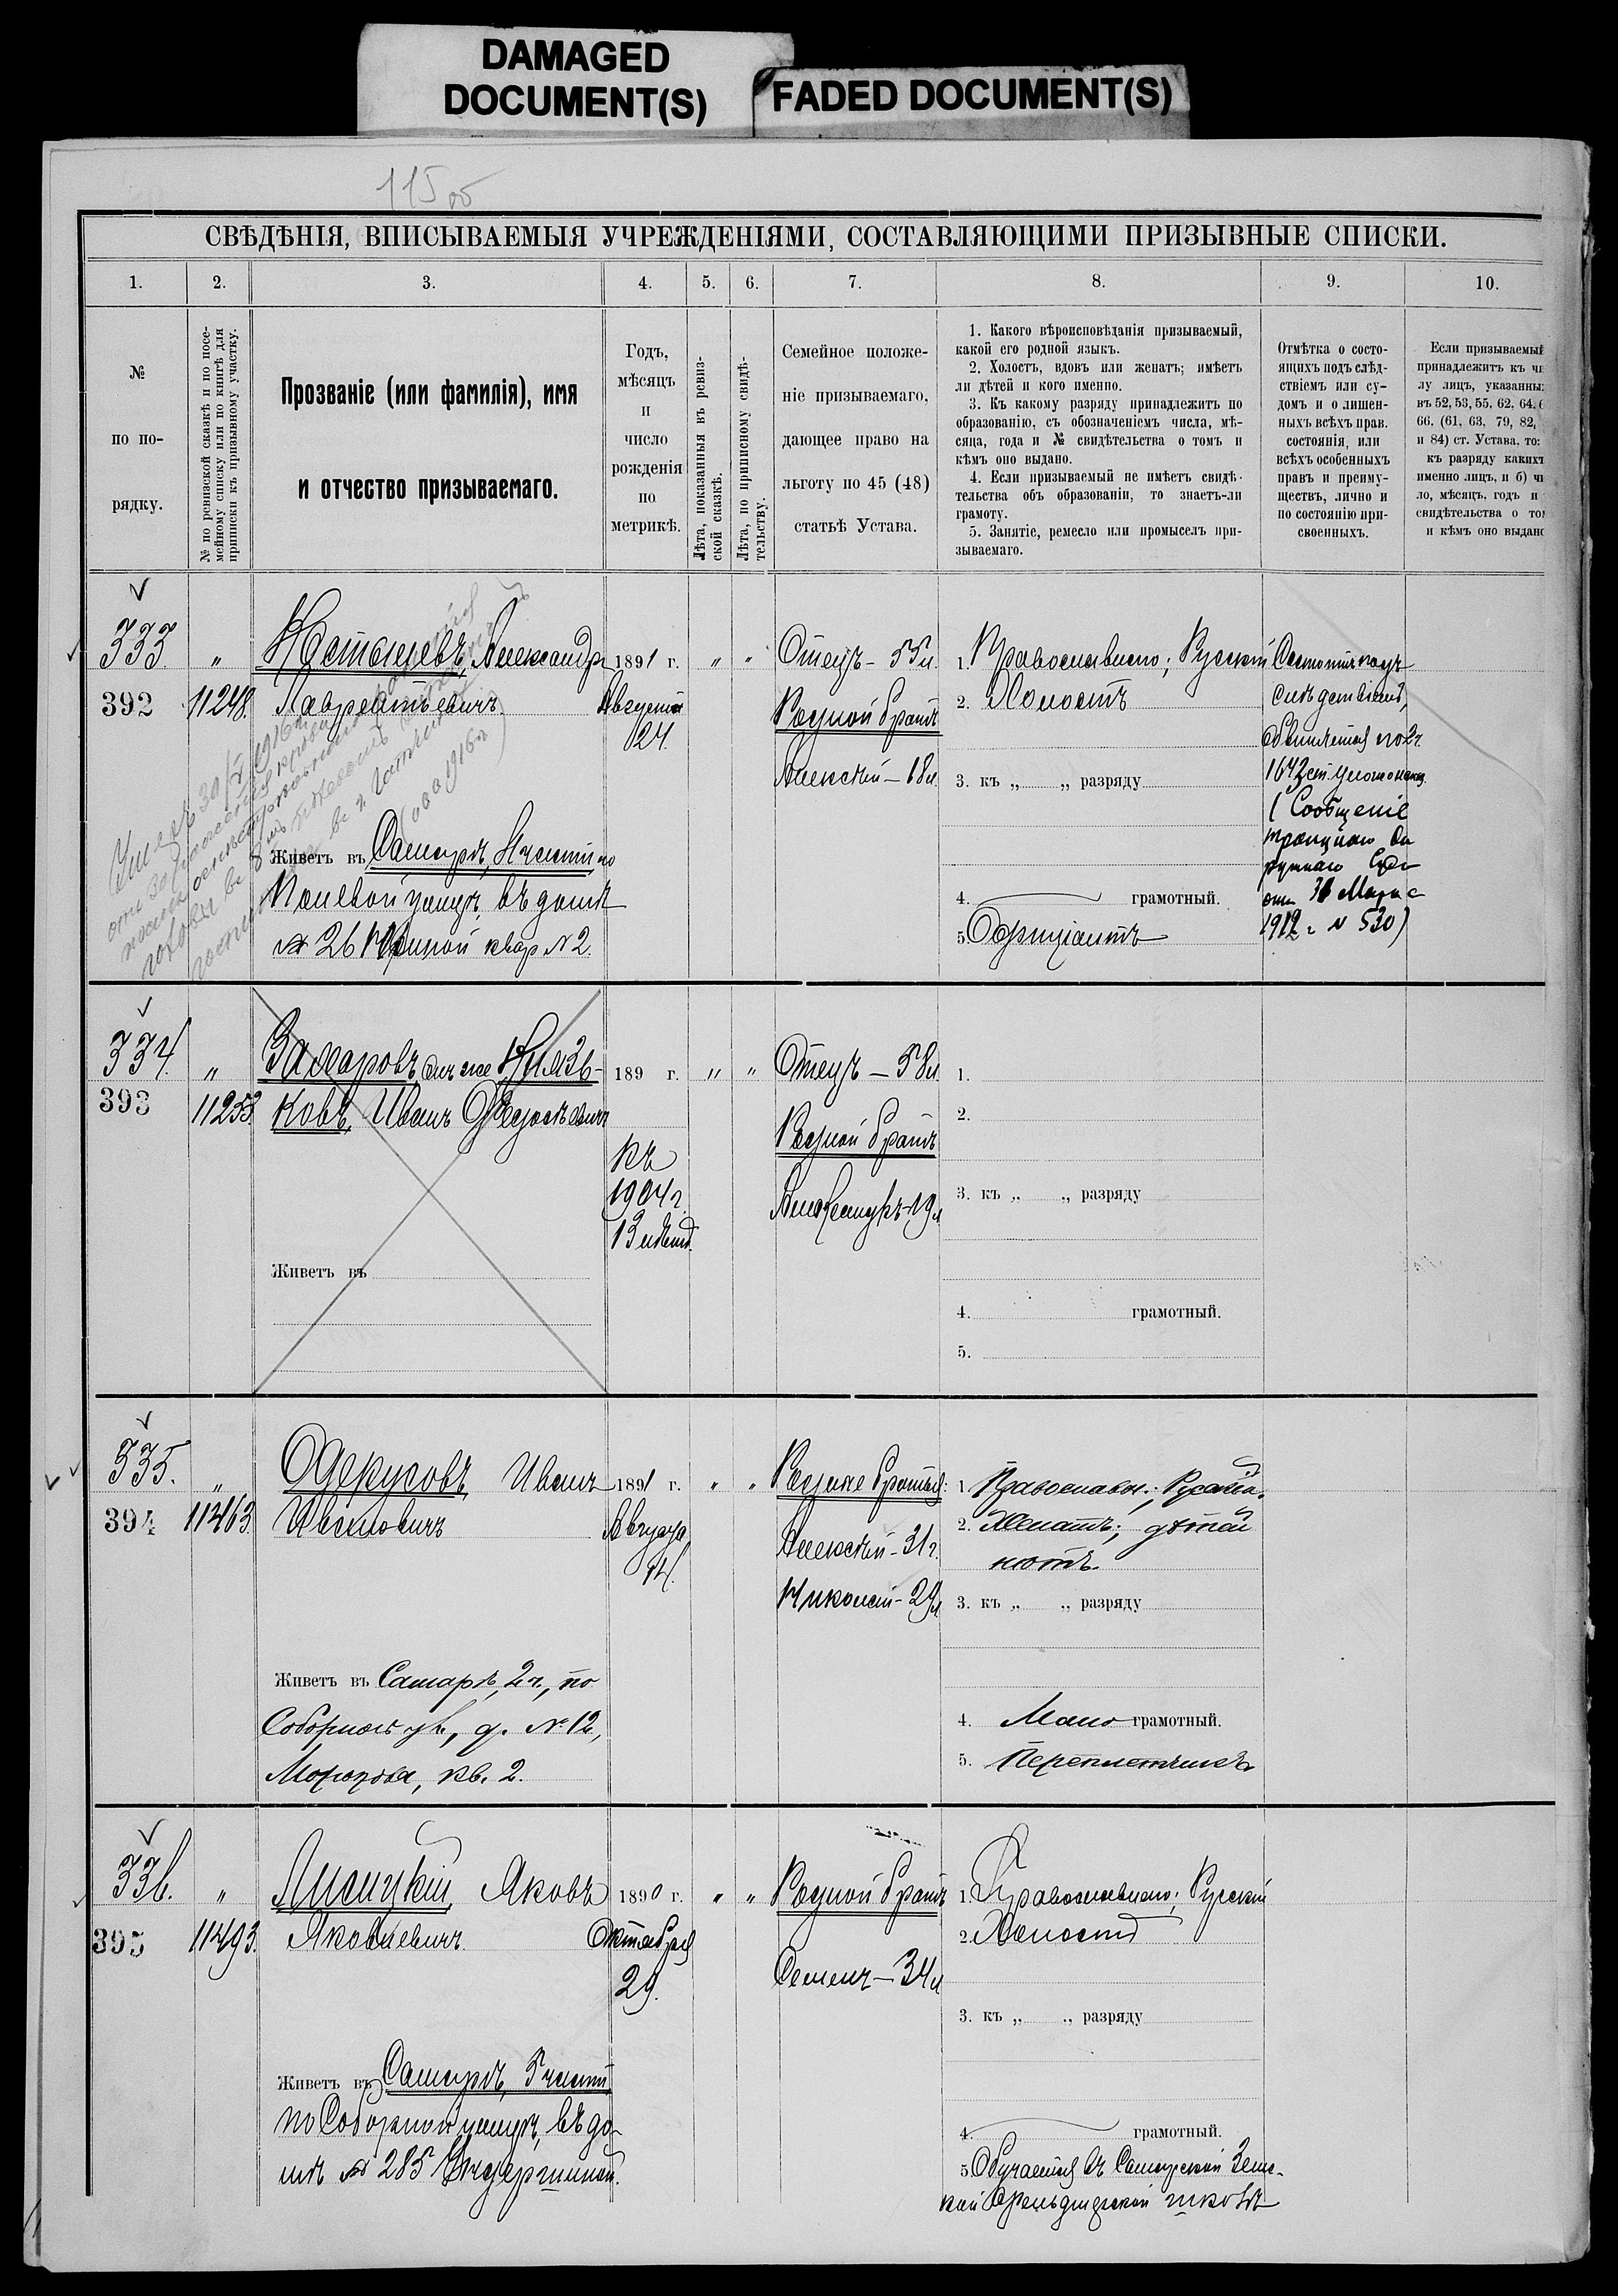 DAMAGED
DOCUMENT(S)
FADED DOCUMENT(S)
115 об
СВѢДѢНІЯ, ВПИСЫВАЕМЫЯ УЧРЕЖДЕНІЯМИ, СОСТАВЛЯЮЩИМИ ПРИЗЫВНЫЕ СПИСКИ.
1. 2. 3. 4. 5. 6. 7. 8. 9. 10.
№
по по-
рядку.
№ по ревизской сказкѣ и по посе-
мейному списку или по книгѣ для
приписки къ призывному участку.
Прозваніе (или фамилія), имя
и отчество призываемаго.
Годъ,
мѣсяцъ
и
число
рожденія
по
метрикѣ.
Лѣта, показанныя въ ревиз-
ской сказкѣ.
Лѣта, по приписному свидѣ-
тельству.
Семейное положе-
ніе призываемаго,
дающее право на
льготу по 45 (48)
статьѣ Устава.
1. Какого вѣроисповѣданія призываемый,
какой его родной языкъ.
2. Холостъ, вдовъ или женатъ; имѣетъ
ли дѣтей и кого именно.
3. Къ какому разряду принадлежитъ по
образованію, съ обозначеніемъ числа, мѣ-
сяца, года и № свидѣтельства о томъ и
кѣмъ оно выдано.
4. Если призываемый не имѣетъ свидѣ-
тельства объ образованіи, то знаетъ-ли
грамоту.
5. Занятіе, ремесло или промыселъ при-
зываемаго.
Отмѣтка о состо-
ящихъ подъ слѣд-
ствіемъ или су-
домъ и о лишен-
ныхъ всѣхъ прав.
состоянія, или
всѣхъ особенныхъ
правъ и преиму-
ществъ, лично и
по состоянію при-
своенныхъ.
Если призываемый
принадлежитъ къ чи
лу лицъ, указанны
въ 52, 53, 55, 62, 64,
66, (61, 63, 79, 82,
и 84) ст. Устава, то:
къ разряду какихъ
именно лицъ, и б) чи
ло, мѣсяцъ, годъ и
свидѣтельства о то
и кѣмъ оно выдано
333. „ Александр 1891 г. „ „ Отецъ - 55 л. 1. Православно; Русскій Состоитъ подъ
392 11248. Лаврентьевичъ. Августа Родной братъ 2. Холостъ слѣдствіемъ,
24. обвиняется по 2 ч.
Алексѣй - 18 л. 3. къ „ „ разряду 1643 ст. улож. о наказ.
(Сообщеніе
Живетъ въ Самарѣ, части, по
Полевой улицѣ, въ домѣ
4. грамотный. от 31 Марта
№ 26 квар № 2. 5. Официантъ 1912 г. № 530)
334. „ Захаровъ, онъ же Князь- 189 г. „ „ Отецъ - 58 л. 1.
393 11253. ковъ, Иванъ Родной братъ 2.
къ
1904 г. Александръ - 19 л. 3. къ „ „ разряду
13 лѣтъ.
Живетъ въ
4. грамотный.
5.
335. „ Одерусовъ, Иванъ 1891 г. „ „ Родные братья: 1. Православн.; Русскій.
394 11463. Ивановичъ Августа 2. Женатъ; дѣтей
14. Алексѣй - 31 г. нѣтъ.
Николай - 29 л. 3. къ „ „ разряду
Живетъ въ Самарѣ, 2 ч., по
Соборной ул., д. № 12, 4. Мало грамотный.
Морозова, кв. 2. 5. Переплетчикъ
336. „ Лисицкій, Яковъ 1890 г. „ „ Родной братъ 1. Православно; Русскій
395 11493. Яковлевичъ. Октября 2. Холостъ
29. Семенъ - 34 л.
3. къ „ „ разряду
Живетъ въ Самарѣ, 5 части,
по Соборной улицѣ, въ до- 4. грамотный.
мѣ № 285 5. Обучается въ Самарской Земс-
кой Фельдшерской школѣ